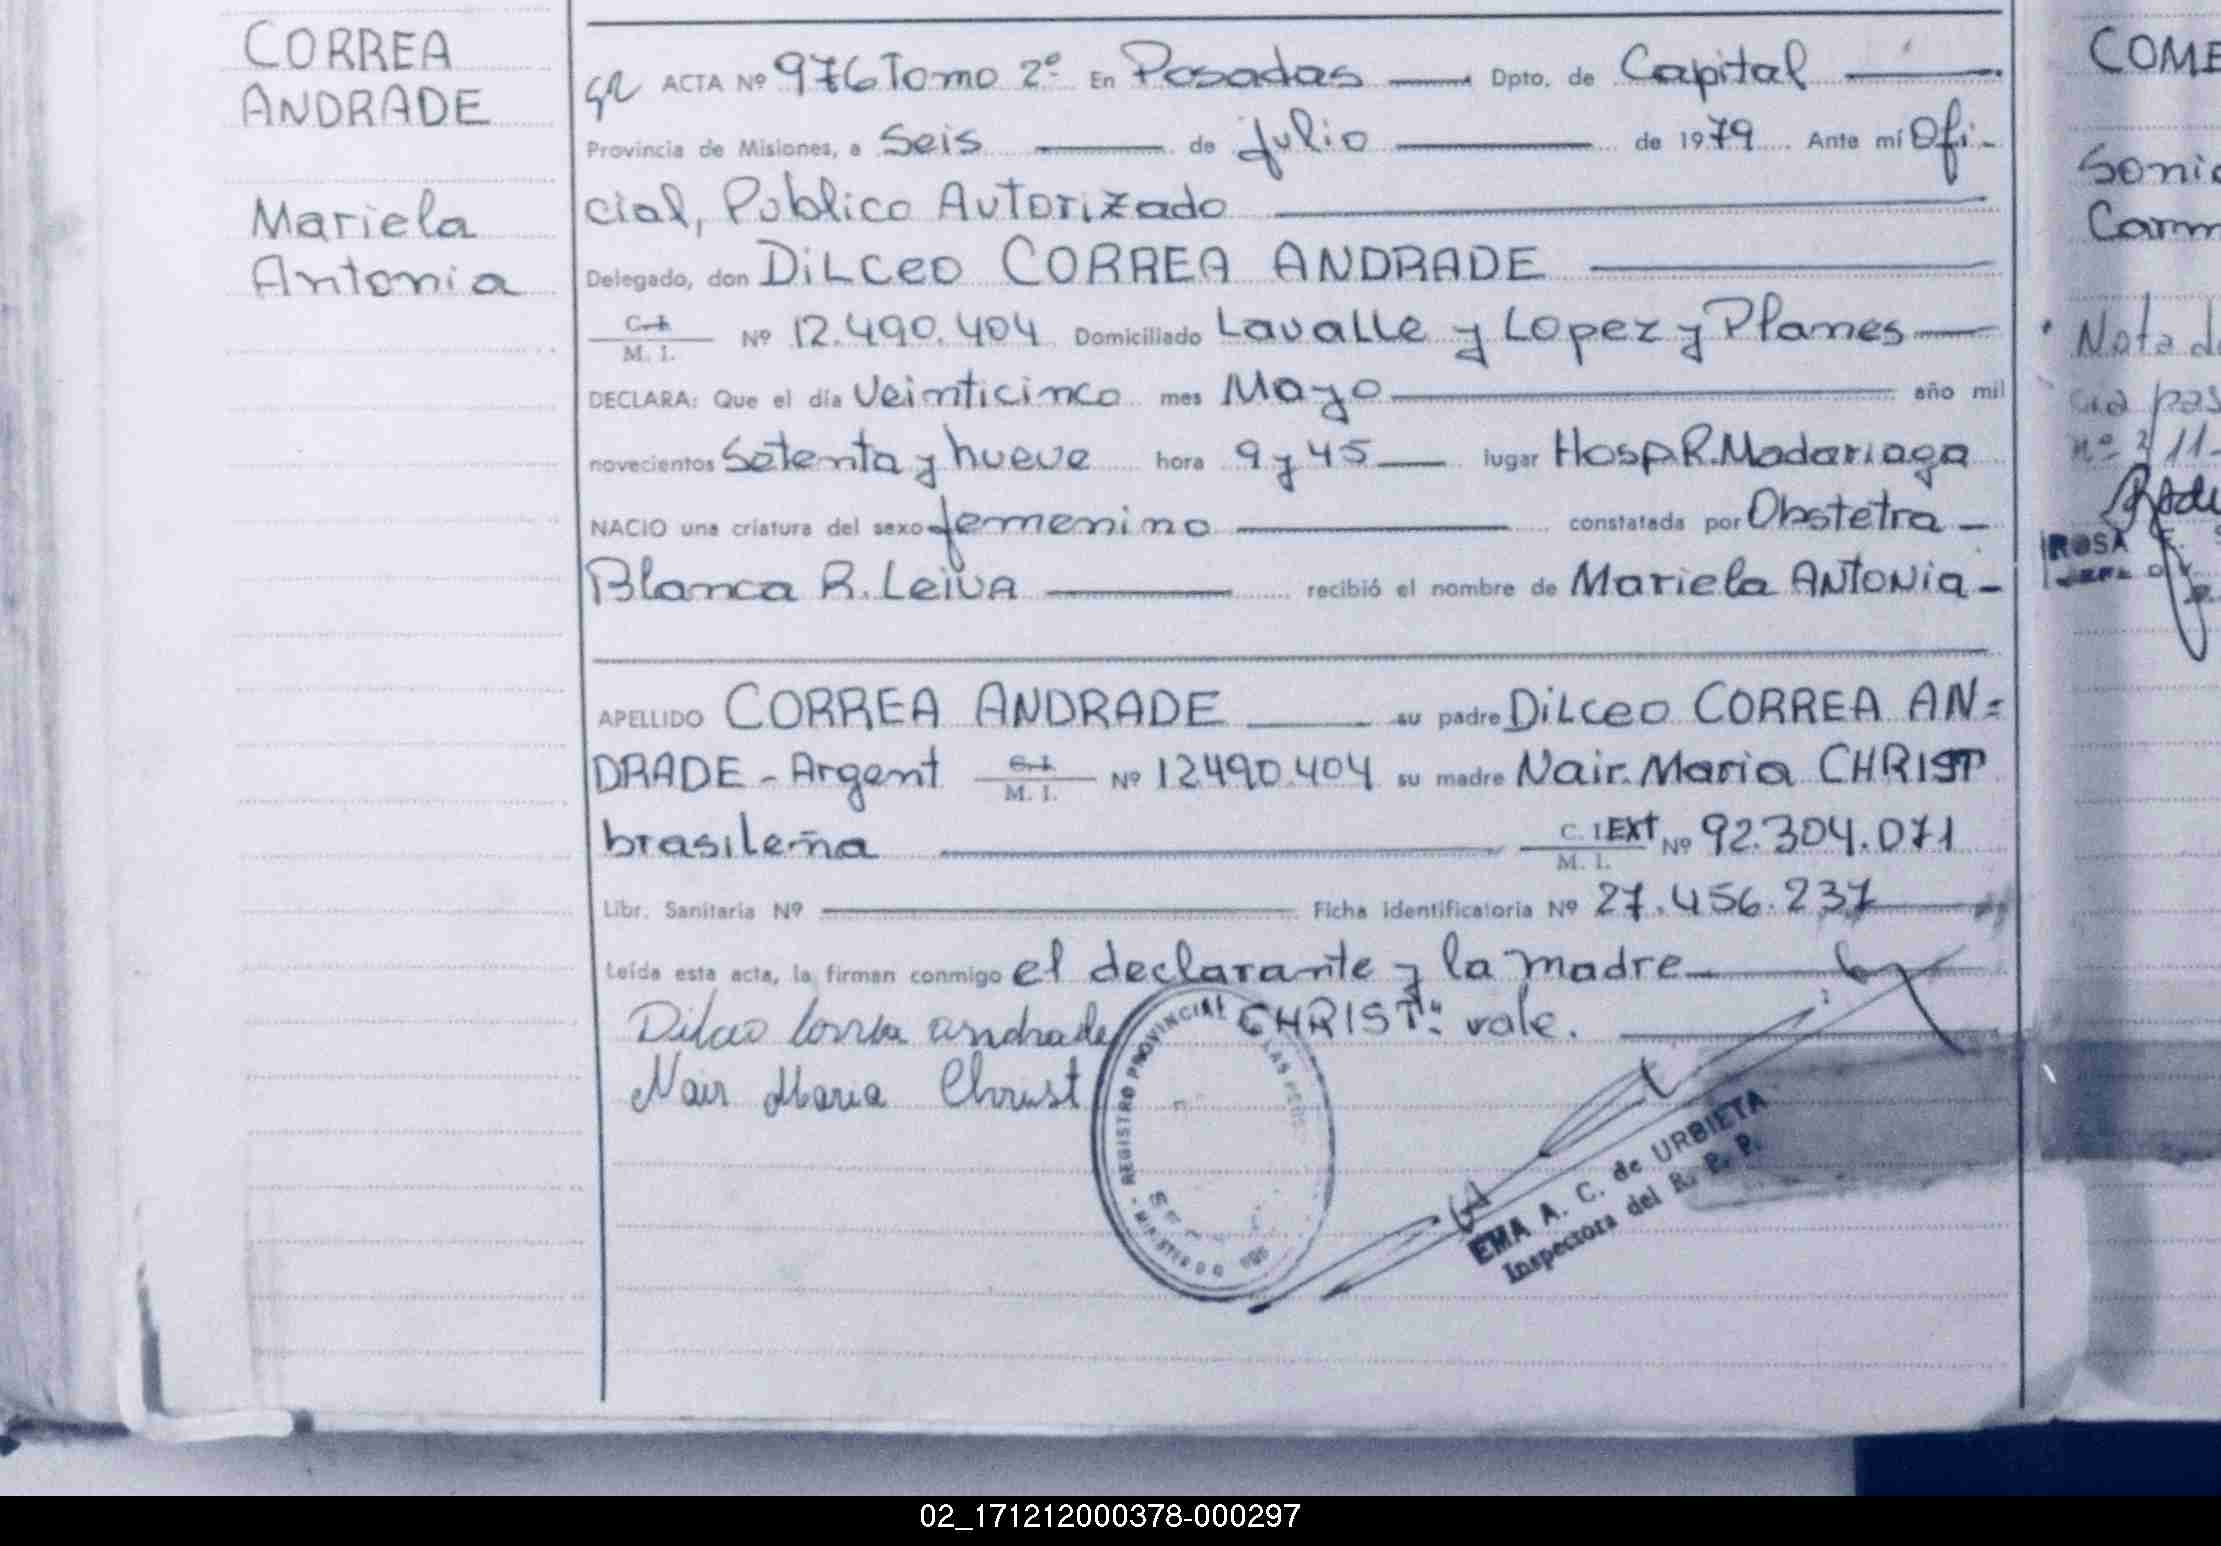 CORREA
ANDRADE
Mariela
Antonia
ACTA Nº 976 Tomo 2º En Posadas Dpto. de Capital
Provincia de Misiones, a Seis de julio de 1979 Ante mí Ofi-
cial, Publico Autorizado
Delegado, don DiLCeo CORREA ANDRADE
C. I.
M. I. Nº 12.490.404 Domiciliado Lavalle y Lopez y Planes
DECLARA: Que el día Veinticinco mes Mayo año mil
novecientos Setenta y nueve hora 9 y 45 lugar Hosp.R.Madariaga
NACIO una criatura del sexo femenino constatada por Obstetra -
Blanca R. Leiva recibió el nombre de Mariela ANTONia -
APELLIDO CORREA ANDRADE su padre DiLceo CORREA AN=
DRADE - Argent C. I. M. I. Nº 12490.404 su madre Nair. Maria CHRIST
brasileña C. I EXT M. I. Nº 92.304.071
Libr. Sanitaria Nº Ficha identificatoria Nº 27.456.237
Leída esta acta, la firman conmigo el declarante y la madre
Dilceo Correa andrade CHRIST": vale.
Nair Maria Christ
REGISTRO PROVINCIAL DE LAS PERS
MINISTERIO
EMA A. C. de URBIETA
Inspectora del R. P. P.
COME
Sonia
Carm
Nota d
cia pas
nº 2/11-
ROSA
02_171212000378-000297